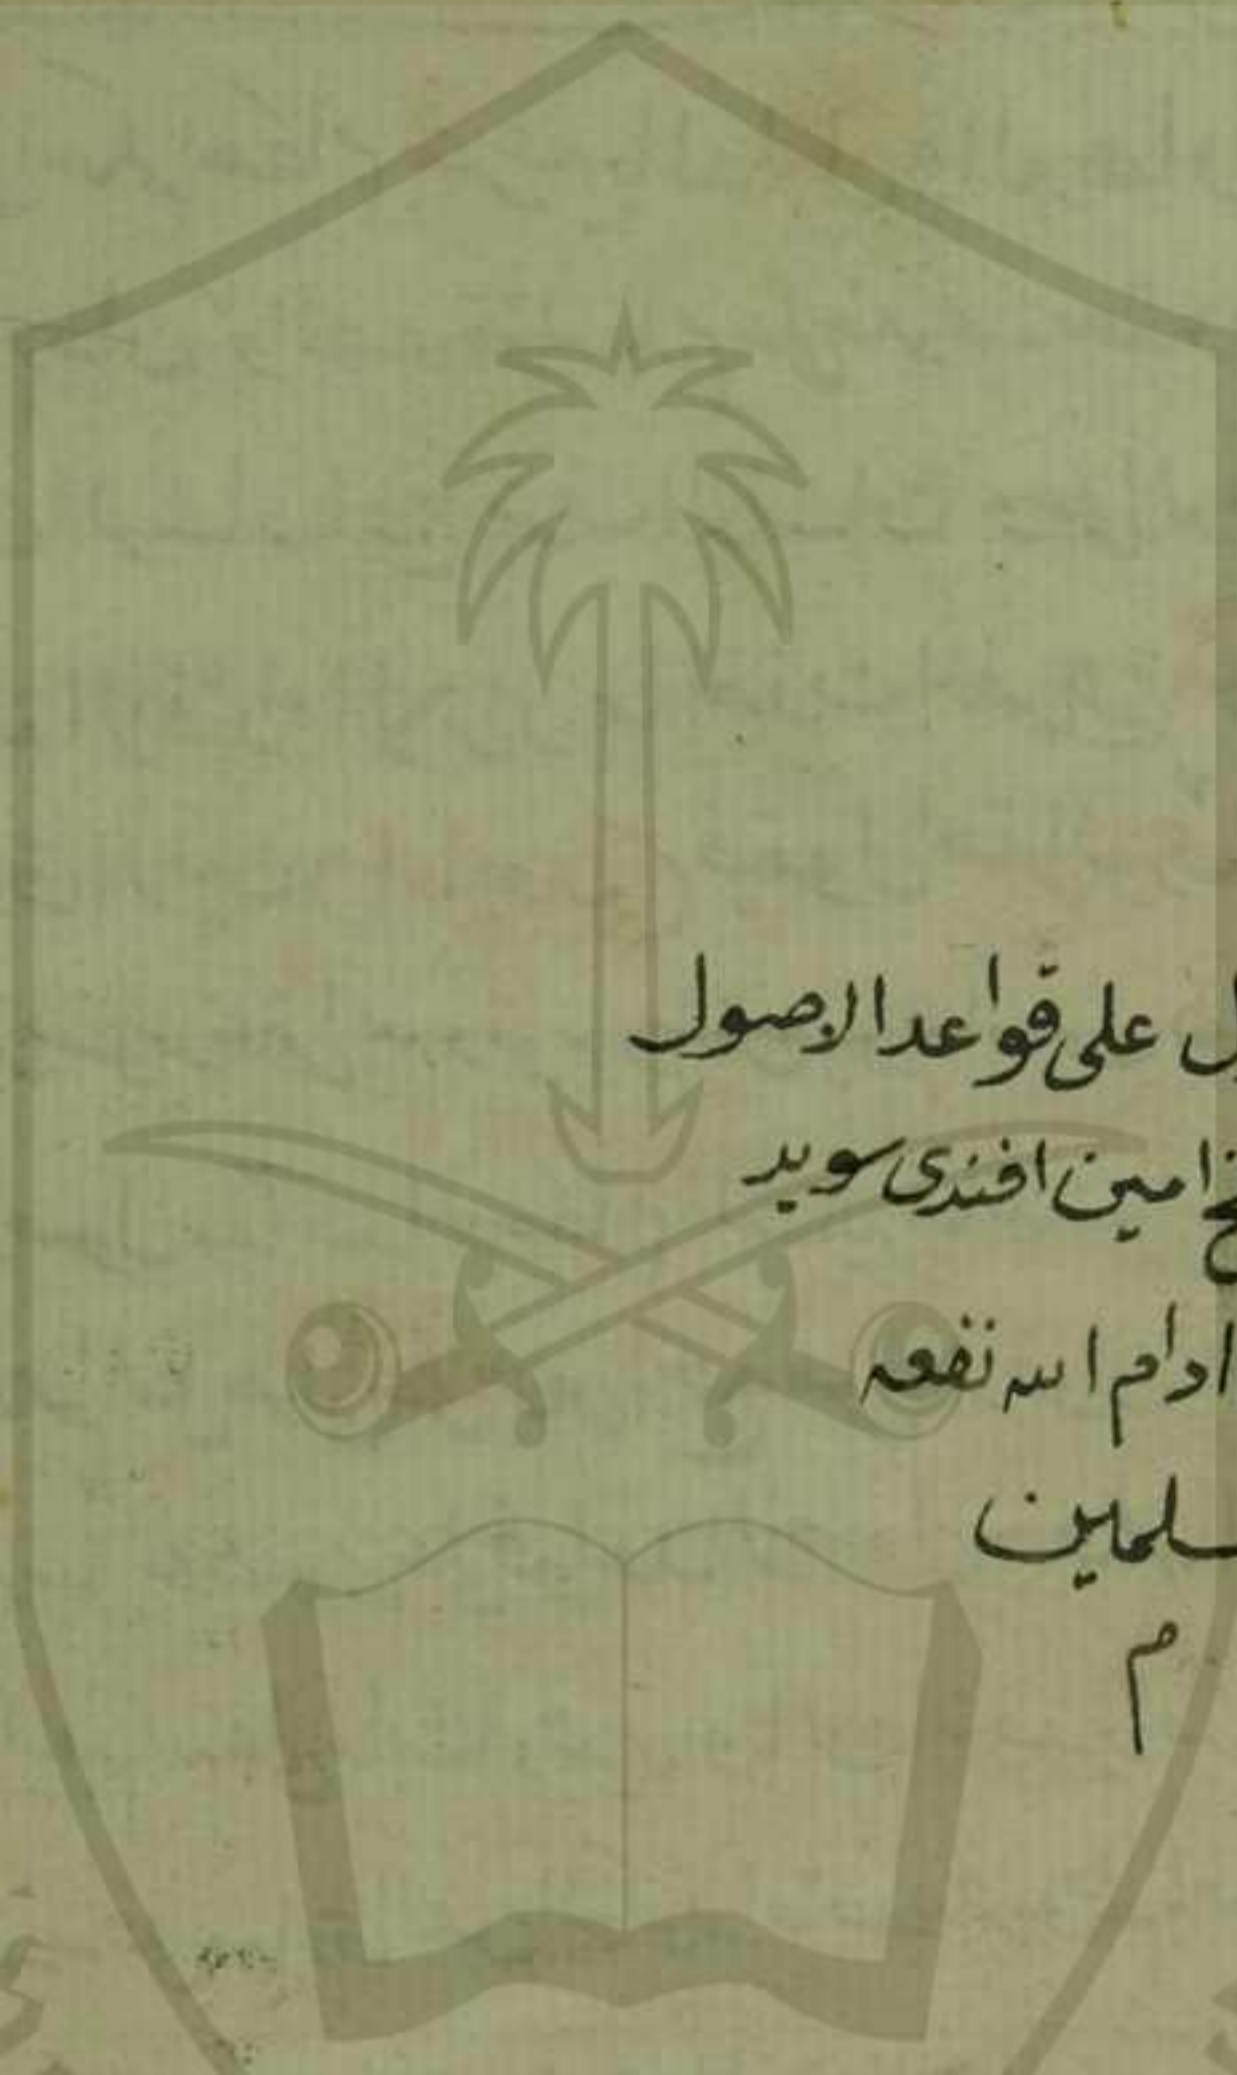 ل على قواعد الاصول
خ امين افندى سويد
ادام الله نفعه
سلمين
م